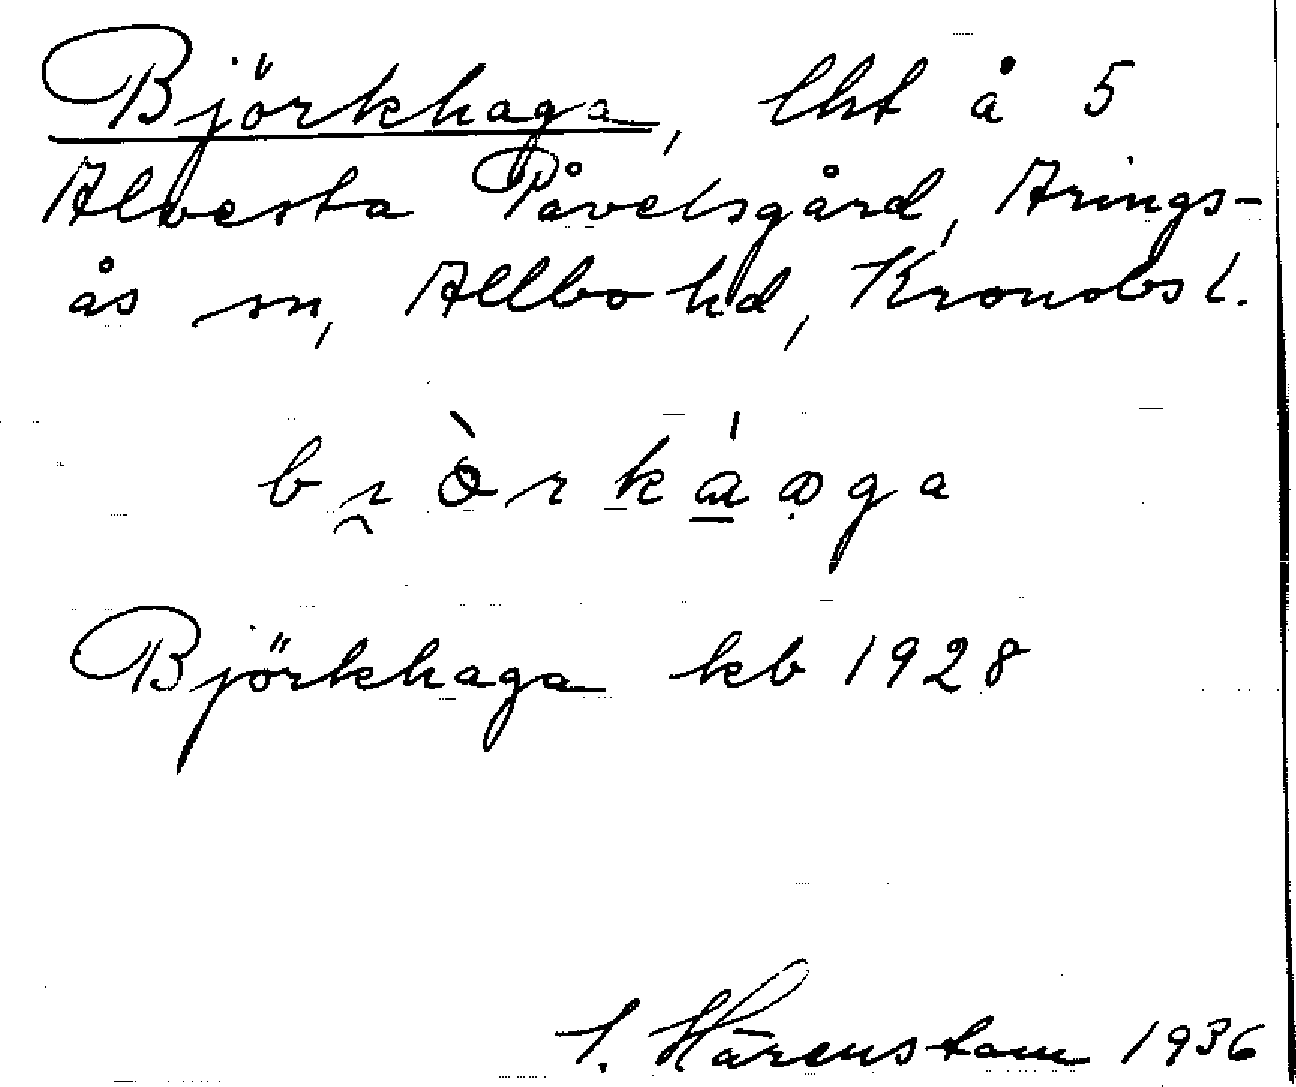 Björkhaga, lht å 5
Alvesta Påvelsgård, Arings-
ås sn, Allbo hd, Kronobs l.
Björkhaga kb 1928
Härenstam 1936